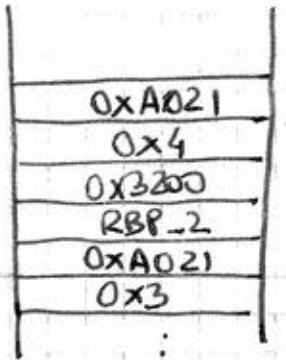 0xA021
0x4
0x3200
RBP_2
0xA021
0x3